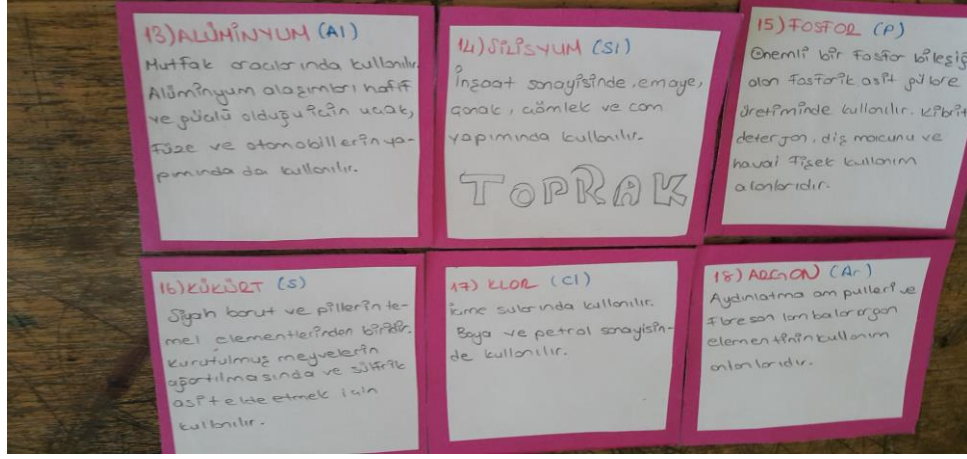 13) ALÜMİNYUM (Al)
Mutfak araçlarında kullanılır.
Alüminyum alaşımları hafif
ve güçlü olduğu için uçak,
füze ve otomobillerin ya-
pımında da kullanılır.
14) SİLİSYUM (Si)
İnşaat sanayisinde, emaye,
çanak, çömlek ve cam
yapımında kullanılır.
TOPRAK
15) FOSFOR (P)
Önemli bir fosfor bileşiğ
olan fosforik asit gübre
üretiminde kullanılır. Kibrit
deterjan, diş macunu ve
havai fişek kullanım
alanlarıdır.
16) KÜKÜRT (S)
Siyah barut ve pillerin te-
mel elementlerinden biridir.
Kurutulmuş meyvelerin
ağartılmasında ve sülfirik
asit elde etmek için
kullanılır.
17) KLOR (Cl)
İçme sularında kullanılır.
Boya ve petrol sanayisin-
de kullanılır.
18) ARGON (Ar)
Aydınlatma ampulleri ve
floresan lambalar argon
elementinin kullanım
alanlarıdır.